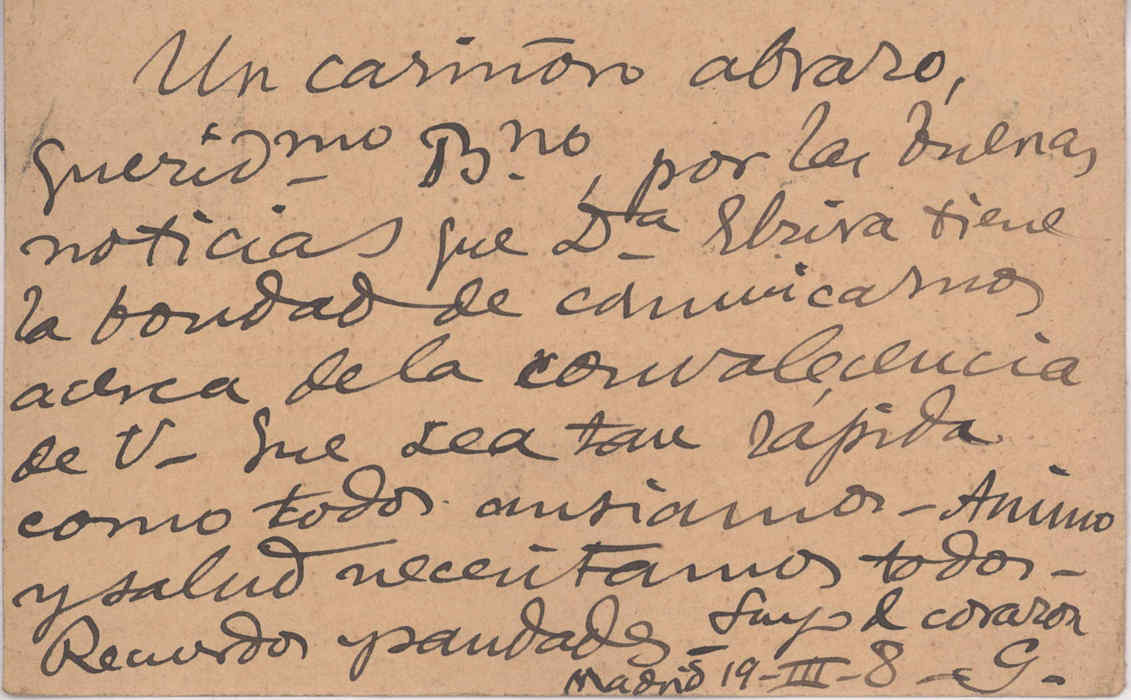 Un cariñoso abrazo,
queridmo Bno, por las buenas
noticias que Da Elvira tiene
la bondad de comunicarnos
acerca de la convalecencia
de V– que sea tan rápida
como todos ansiamos – Animo
y salud necesitamos todos –
Recuerdos y saudades – Suyo de corazon
Madrid 19-III-8 – G.